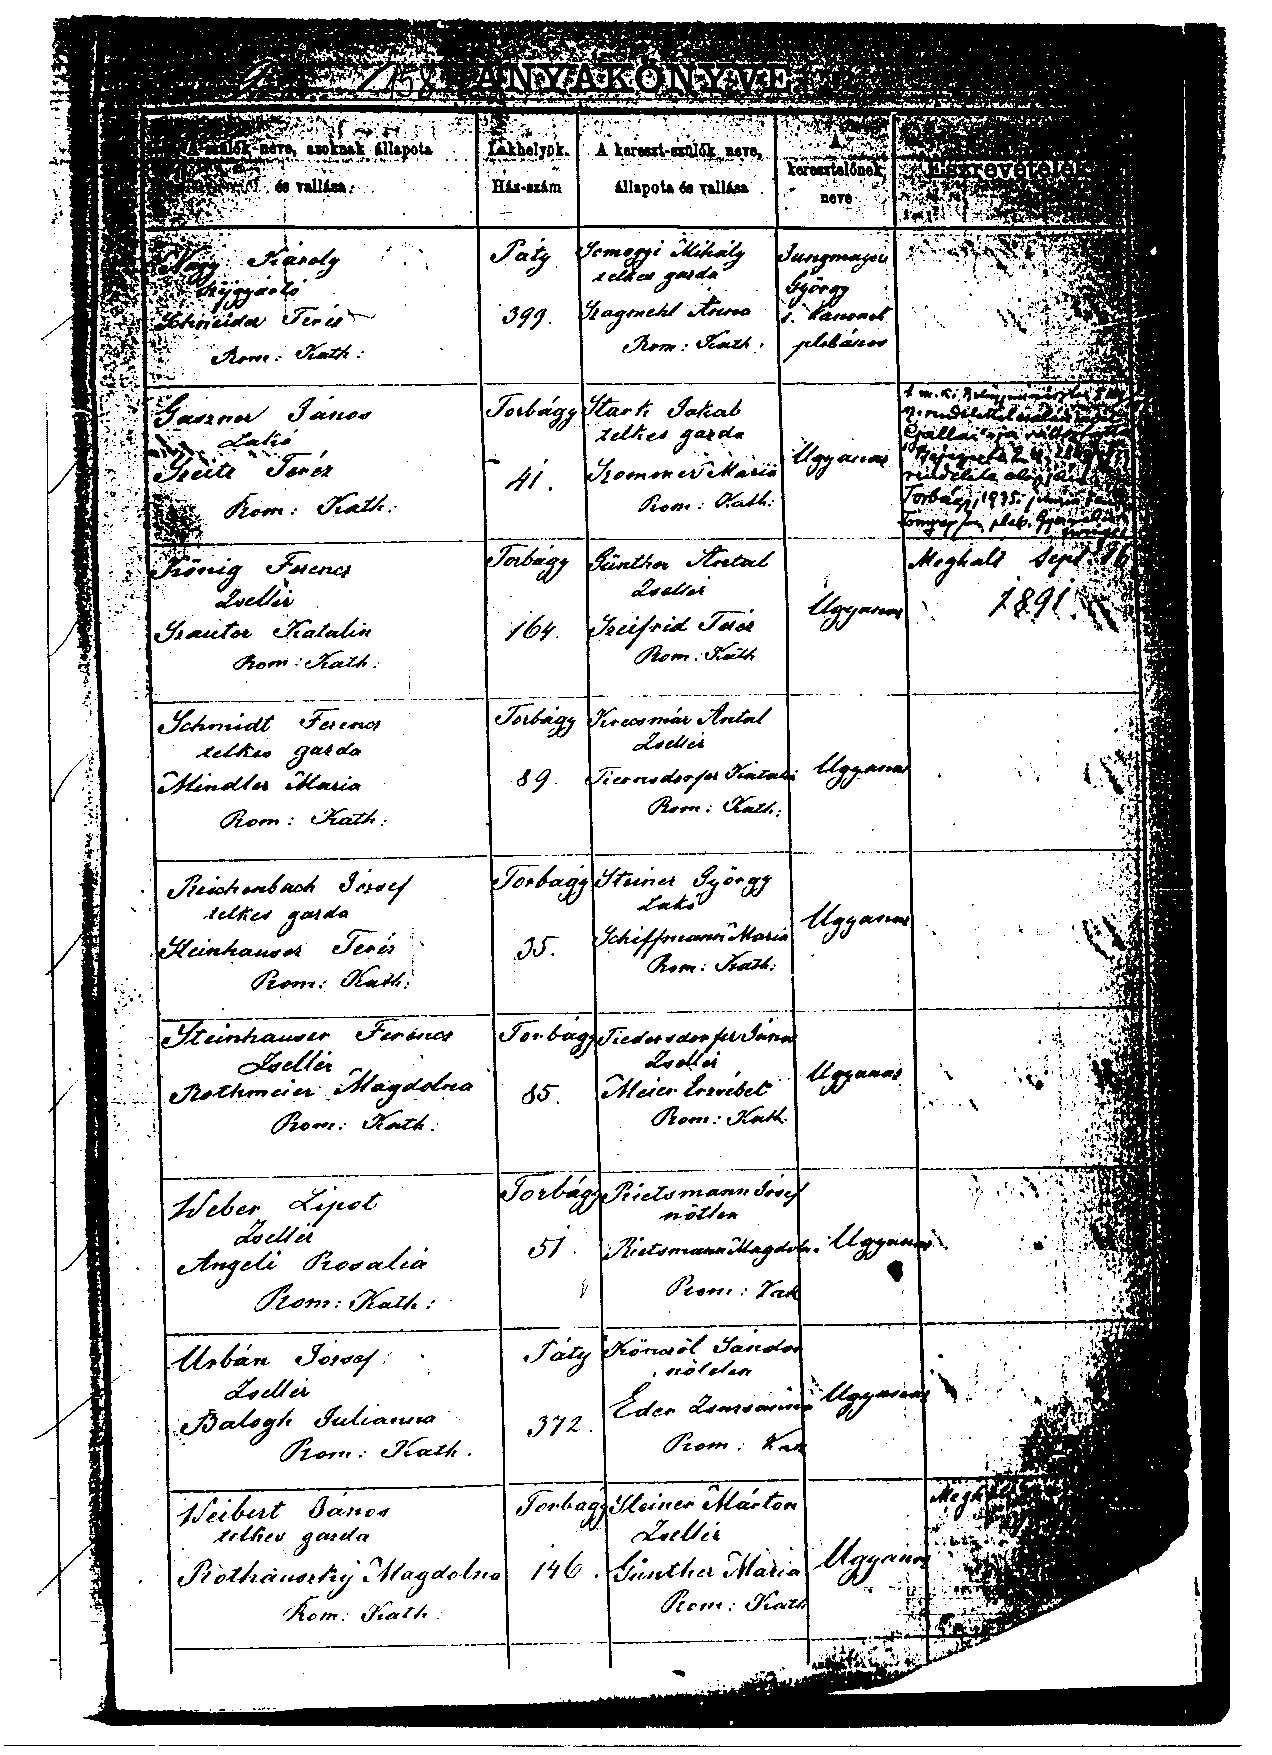 158 ANYAKÖNYVE
A szülők neve, azoknak állapota
és vallása.
Lakhelyök.
Ház-szám
A kereszt-szülők neve,
állapota és vallása
A
keresztelőnek
neve
Észrevételek
Nagy Károly
Schneider Teréz
Rom: Kath:
Páty
399.
Somogyi Mihály
telkes gazda
Szagmehl Anna
Rom: Kath.
Jungmayer
György
s. kanonok
plébános
Gaszner János
Lakó
Szeitz Teréz
Rom: Kath:
Torbágy
41.
Stark Jakab
telkes gazda
Szommer Maria
Rom: Kath:
Ugyanaz
Torbágy, 1935.
König Ferencz
Zsellér
Szautor Katalin
Rom: Kath:
Torbágy
164.
Günther Antal
Zsellér
Szeifrid Teréz
Rom: Kath
Ugyanaz
Meghalt Sept. 16
1891.
Schmidt Ferencz
telkes gazda
Mindler Maria
Rom: Kath:
Torbágy
89.
Krecsmár Antal
Zsellér
Rom: Kath:
Ugyanaz
Reichenbach József
telkes gazda
Steinhauser Teréz
Rom: Kath:
Torbágy
35.
Steiner György
Lakó
Schiffmann Maria
Rom: Kath:
Ugyanaz
Steinhauser Ferencz
Zsellér
Rothmeier Magdolna
Rom: Kath:
Torbágy
85.
Tiedersdorfer János
Zsellér
Meier Erzsébet
Rom: Kath
Ugyanaz
Weber Lipot
Zsellér
Angeli Rosalia
Rom: Kath:
Torbágy
51.
Rietsmann József
nőtlen
Rietsmann Magdoln
Rom: Kat
Ugyanaz
Urbán József
Zsellér
Balogh Julianna
Rom: Kath.
Páty
372.
Köncsöl Sándor
nőtlen
Eder Zsuzsanna
Rom: Kat
Ugyanaz
Weibert János
telkes gazda
Rothauszky Magdolna
Rom: Kath
Torbágy
146.
Steiner Márton
Zsellér
Günther Maria
Rom: Kath
Ugyanaz
Meghalt